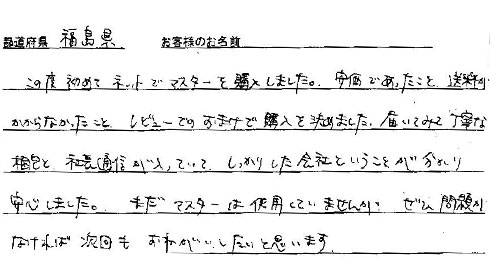 都道府県 福島県 お客様のお名前
この度初めてネットでマスターを購入しました。安価であったこと、送料が
かからなかったこと、レビューでのおまけで購入を決めました。届いてみて丁寧な
梱包と社長通信が入っていて、しっかりした会社ということが分かり
安心しました。まだマスターは使用していませんが、ぜひ問題が
なければ次回もおねがいしたいと思います。